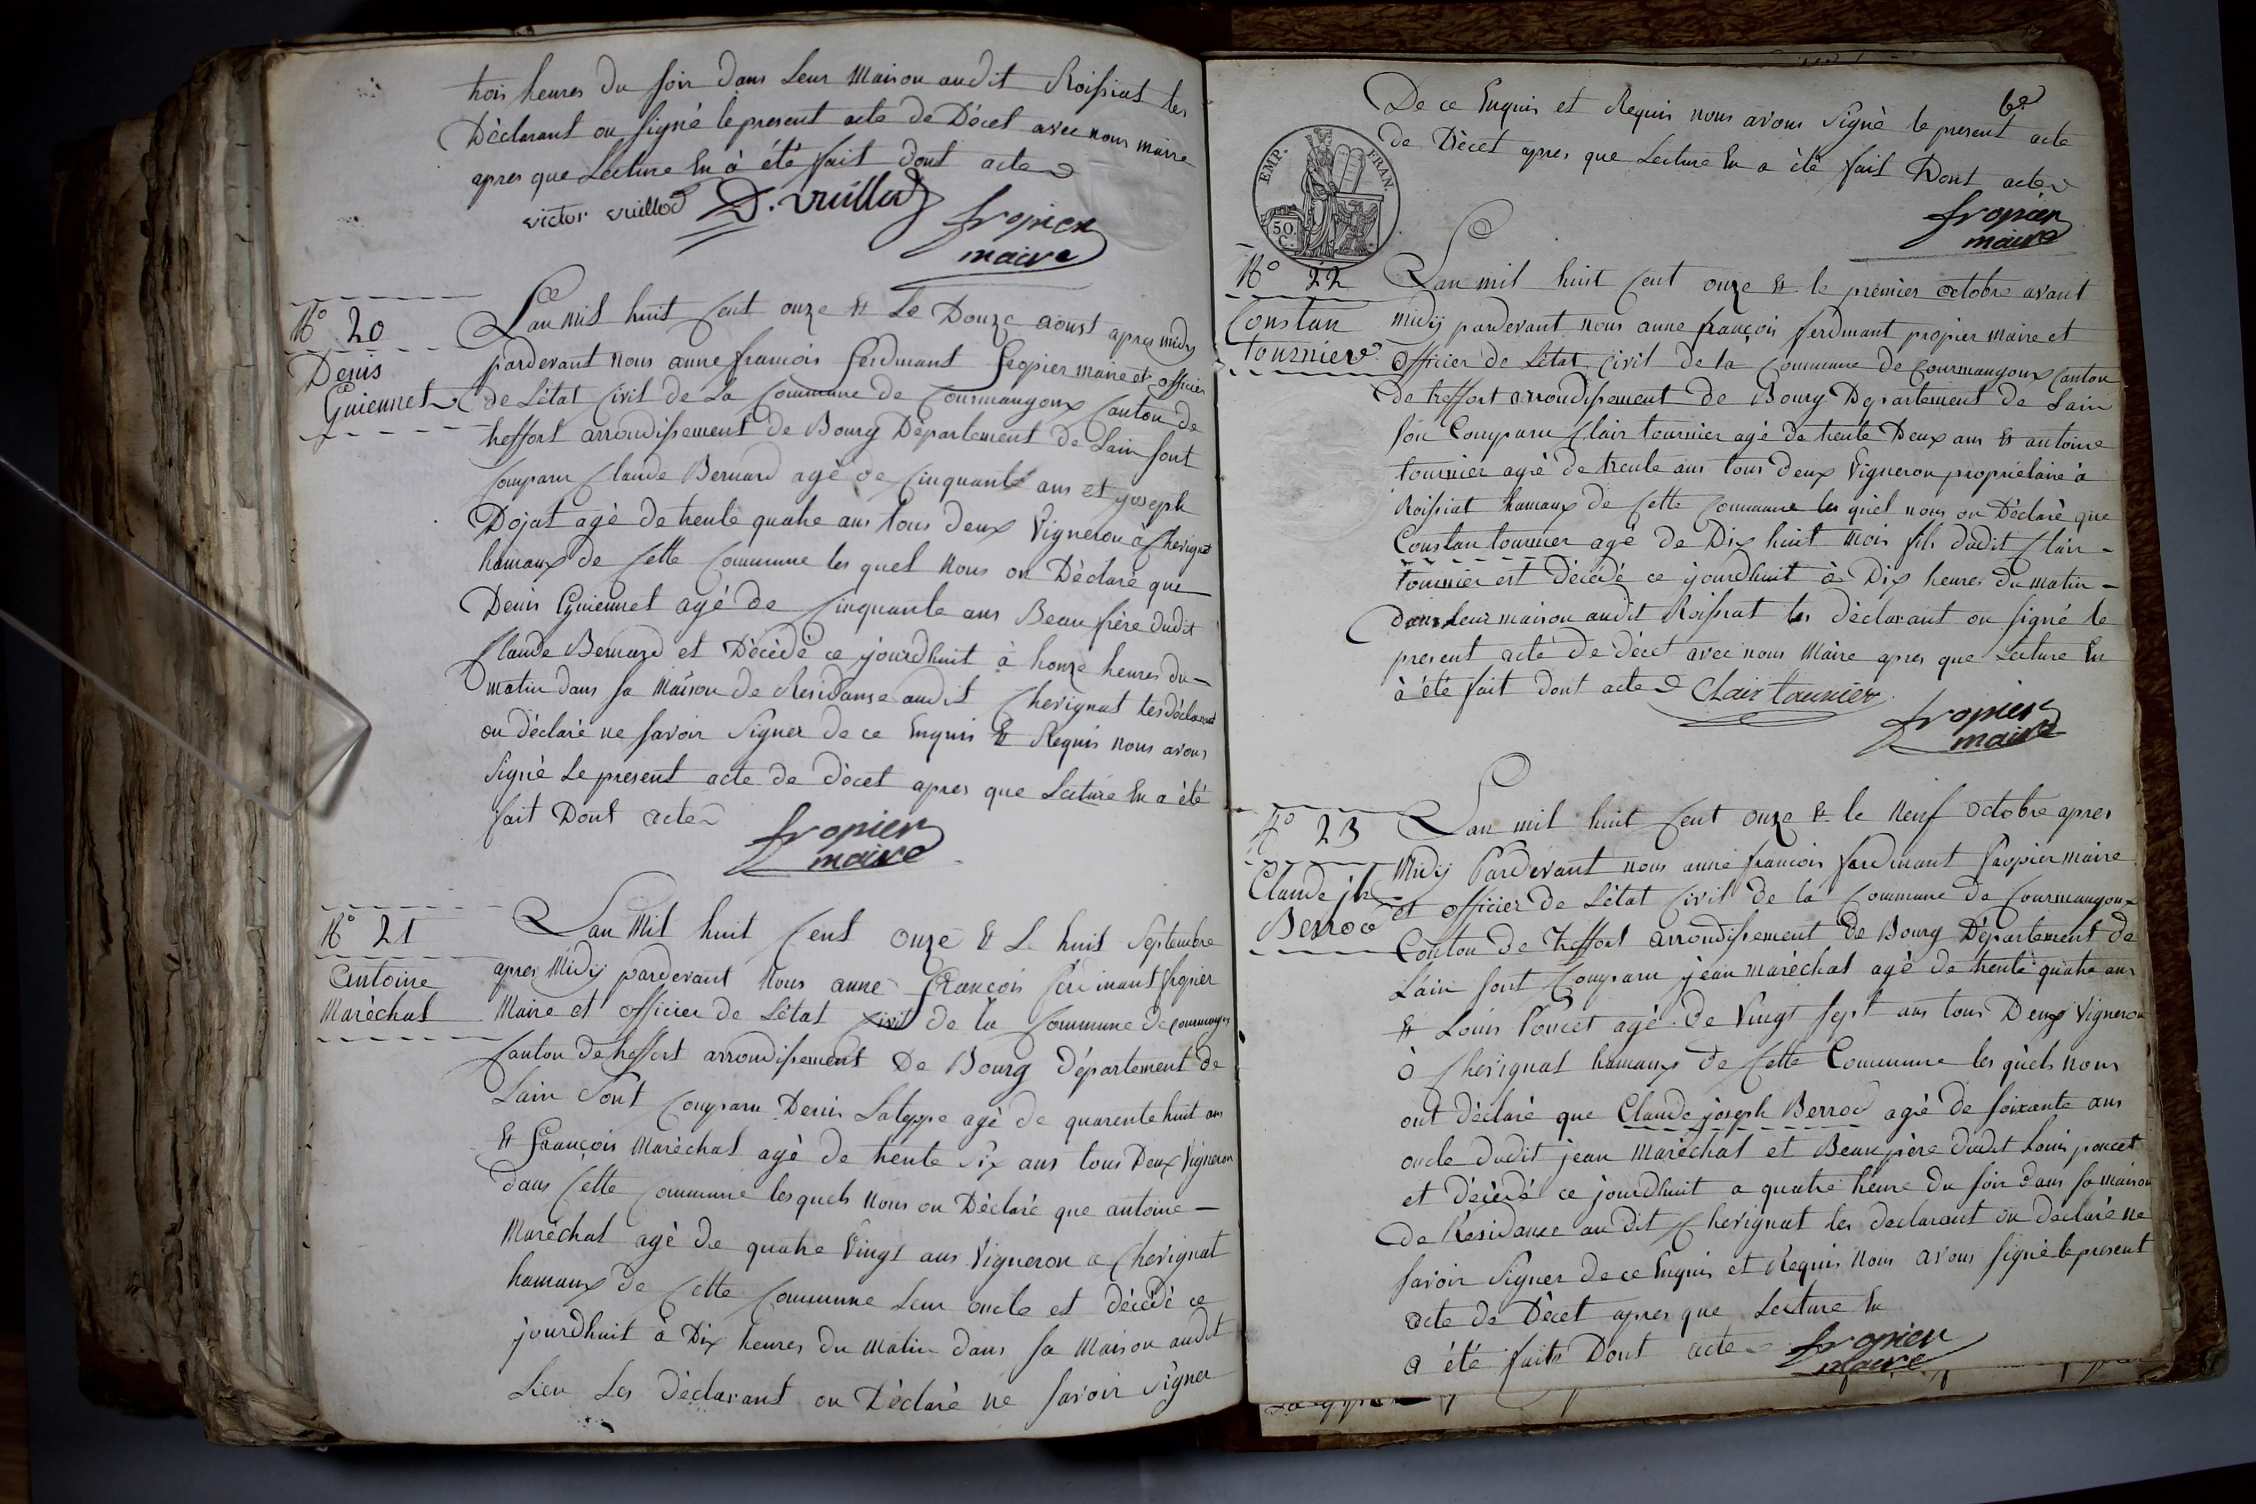 trois heures du soir dans Leur Maison audit Roissiat les
Déclarant on signé le present acte de Décet avec nous maire
apres que Lecture En à été fait dont acte
victor vuillod D. vuillod
fropier
maire
N° 20
Denis
Guiennet
L'an mil huit Cent onze & Le Douze aoust apres midy
pardevant nous anne francois ferdinant fropier maire et officier
de L'état Civil de La Commune de Courmangoux Canton de
treffort arrondissement de Bourg Département de Lain sont
Comparu Claude Bernard agé de Cinquante ans et joseph
Dojat agé de trente quatre ans tous deux Vigneron à Chevignat
hamaux de Cette Commune les quel Nous on Déclaré que
Denis Guiennet agé de Cinquante ans Beau frère dudit
Claude Bernard et Décédé ce jourdhuit à honze heures du
matin dans sa Maison de Residance audit Chevignat les déclarant
on déclaré ne savoir Signer de ce Enquis & Requis nous avons
Signé Le present acte de décet apres que Lecture En a été
fait Dont acte
fropier
maire
N° 21
antoine
Maréchal
L'an Mil huit Cent onze & Le huit Septembre
apres Midy pardevant Nous anne François ferdinant fropier
Maire et officier de L'état Civil de la Commune de Courmangoux
Canton de treffort arrondissement De Bourg Département de
Lain Sont Comparu Denis Lateppe agé de quarente huit ans
& François Maréchal agé de trente Six ans tous Deux Vigneron
dans Cette Commune les quels Nous on Déclaré que antoine
Maréchal agé de quatre Vingt ans Vigneron a Chevignat
hamaux de Cette Commune Leur oncle et décédé ce
jourdhuit à Dix heures du Matin dans sa Maison audit
Lieu Les Déclarant on Déclaré ne savoir Signer
6e
De ce Enquis et Requis nous avons Signé le present acte
de Décet apres que Lecture En a été fait Dont acte
EMP. FRAN.
50.
C.
fropier
maire
N° 22
Constan
tournier
L'an mil huit Cent onze & le premier octobre avant
midy pardevant nous anne françois ferdinant fropier maire et
officier de L'état Civil de la Commune de Courmangoux Canton
de treffort arrondissement de Bourg Departement de Lain
son Comparu Clair tournier agé de trente Deux ans & antoine
tournier agé de trente ans tous deux Vigneron proprietaire à
Roissiat hamaux de Cette Commune les quel nous on Déclaré que
Constan tournier agé de Dix huit mois fils dudit Clair
tournier est décédé ce jourdhuit à Dix heures du matin
dans Leur maison audit Roissiat les déclarant on signé le
present acte de décet avec nous Maire apres que Lecture En
à été fait dont acte Clair tournier
fropier
maire
N° 23
Claude jh
Berrod
L'an mil huit Cent onze & le Neuf octobre apres
Midy Pardevant nous anne francois ferdinant fropier maire
et officier de L'état Civil de la Commune de Courmangoux
Canton de Treffort arrondissement de Bourg Département de
Lain sont Comparu jean maréchal agé de trente quatre ans
& Louis Poncet agé de Vingt sept ans tous Deux Vigneron
à Chevignat hamaux de Cette Commune les quels nous
ont déclaré que Claude joseph Berrod agé de soixante ans
oncle dudit jean Maréchal et Beaupère dudit Louis poncet
et décédé ce jourdhuit a quatre heure du soir dans sa maison
de Residance au dit Chevignat les declarant on declaré ne
savoir Signer de ce Enquis et Requis Nous avons signé le present
acte de Décet apres que Lecture En
a été faite Dont acte
fropier
maire